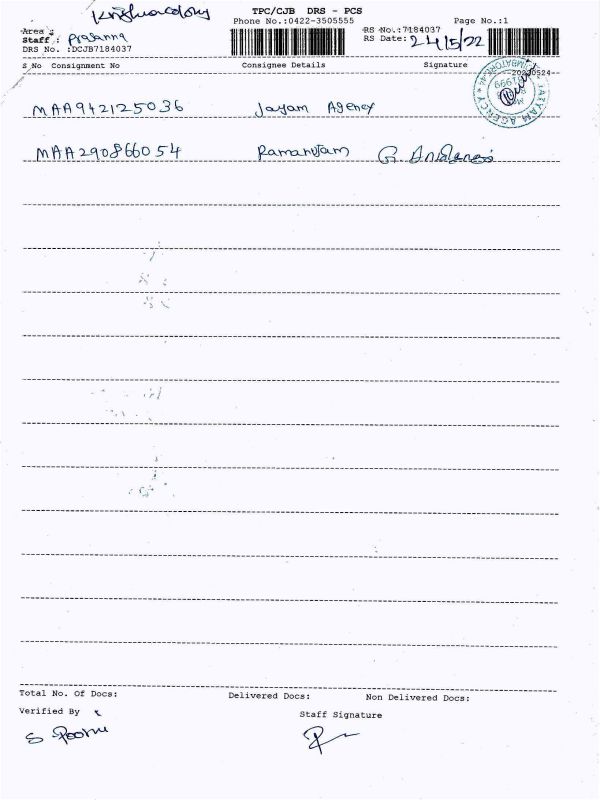 Krishnacolony
TPC/CJB DRS - PCS
Phone No.:0422-3505555
Page No.:1
Area :
Staff : Prasanna
DRS No. :DCJB7184037
RS No.:7184037
RS Date: 24/5/22
S No Consignment No Consignee Details Signature
20220524
MAA942125036 Jayam Agency
MAA290866054 Ramanujam G.
Total No. Of Docs: Delivered Docs: Non Delivered Docs:
Verified By
Staff Signature
S